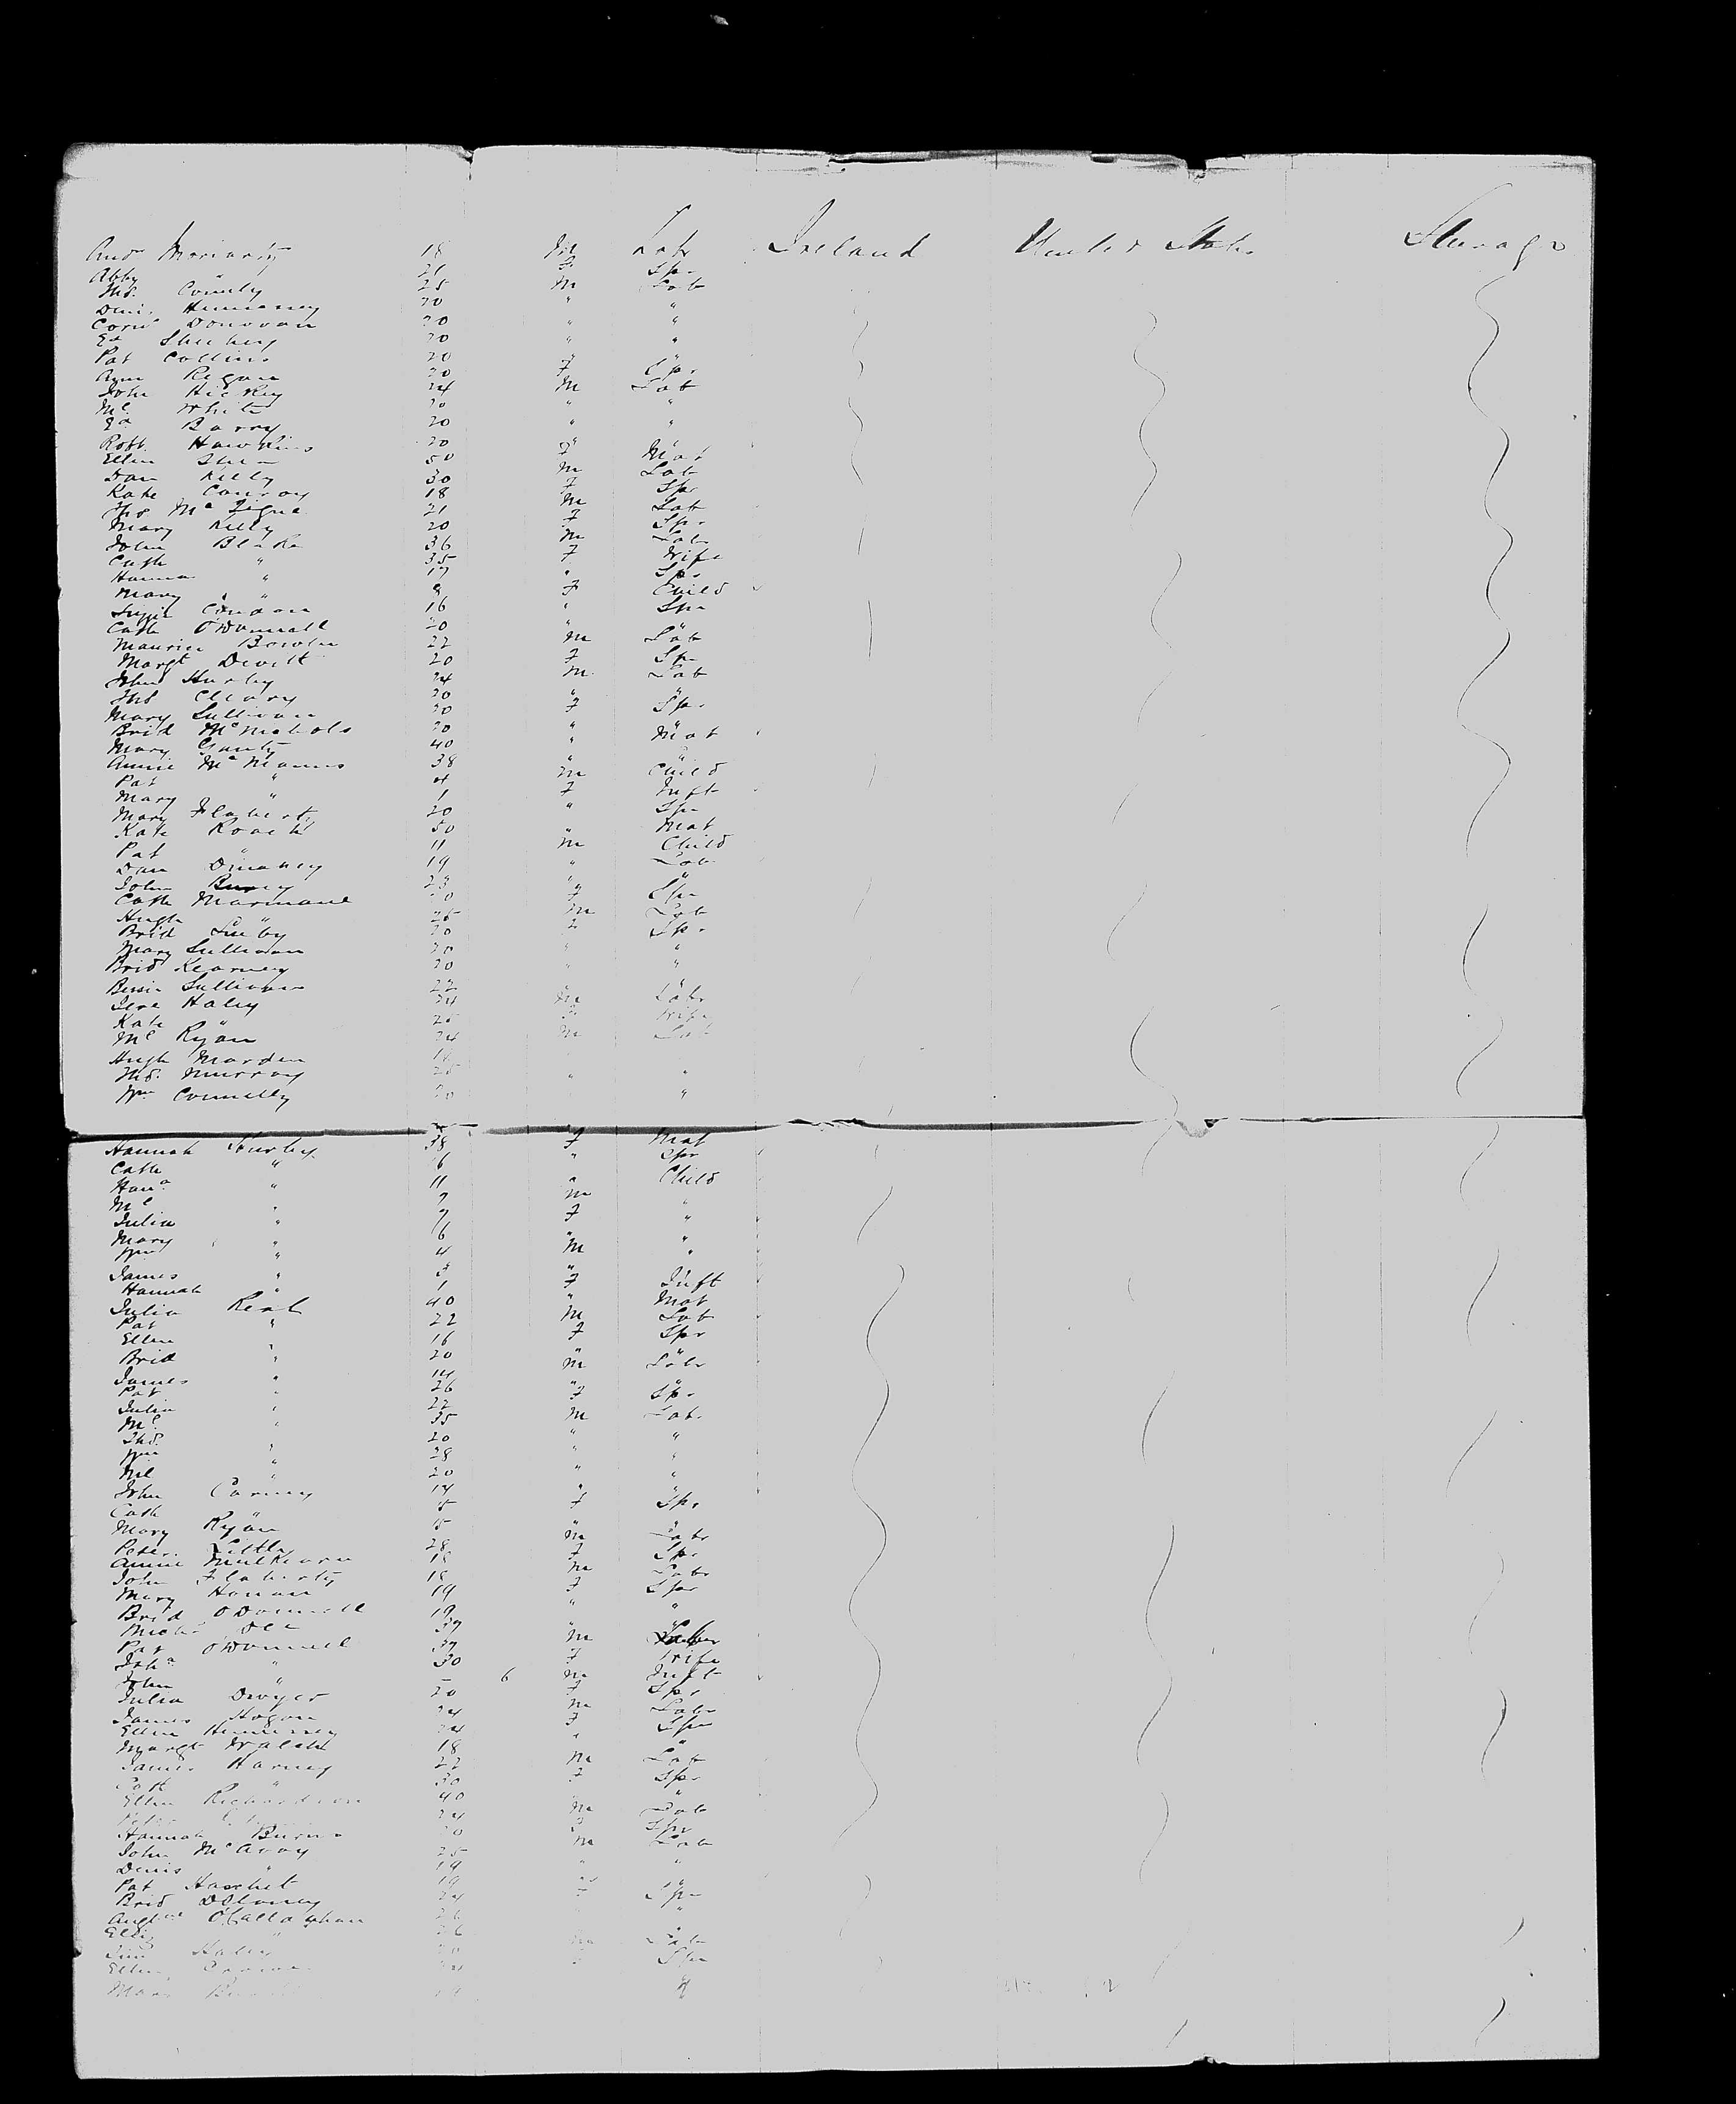 Andw Moriarty 18 M Labr Ireland United States Steerage
Abby " 21 F Spr
Ths. Connely 25 M Lab
Deni. Hennessey 20 " "
Corns Donovan 20 " "
Ed Sheehey 20 " "
Pat Collins 20 " "
Ann Regan 20 F Spr
John Hickey 24 M Lab
Ml White 20 " "
Ed Barry 20 " "
Robt. Hawkins 20 " "
Ellen Shea 50 F Mat
Dan Kelly 30 M Lab
Kate Conroy 18 F Spr
Ths McTigue 21 M Lab
Mary Kelly 20 F Spr
John Blake 36 M Labr
Cath " 35 F Wife
Hanna " 17 " Spr
Mary " 8 F Child
Lizzie Condon 16 " Spr
Cath O'Donnell 20 " "
Maurice Bowler 22 M Lab
Margt Devitt 20 F Spr
John Hurley 24 M Lab
Ths Cleary 20 " "
Mary Sullivan 20 F Spr
Brid McNichols 20 " "
Mary Ganty 40 " Mat
Annie McManus 38 " "
Pat " 4 M Child
Mary " 1 F Inft
Mary Flaherty 20 " Spr
Kate Roach 50 " Mat
Pat " 11 M Child
Dan Dinaney 19 " Lab
John 23 " "
Cath Marmane 20 F Spr
Hugh " 25 M Lab
Brid 20 F Spr
Mary Sullivan 20 " "
Brid Kearney 20 " "
Bessie Sullivan 22 " "
Jere Haley 24 M Labr
Kate " 25 F Wife
Ml Ryan 24 M Lab
Hugh Marden 18 " "
Ths. Murray 25 " "
Wm Connelly 20 " "
Hannah Hurley 38 F Mat
Cath " 16 " Spr
Hana " 11 " Child
Ml " 9 M "
Julia " 7 F "
Mary " 6 " "
Wm " 4 M "
James " 3 " "
Hannah " 1 F Inft
Julia Reab 40 " Mat
Pat " 22 M Lab
Ellen " 16 F Spr
Brid " 20 " "
James " 14 M Labr
Pat " 26 " "
Julia " 22 F Spr
Ml " 35 M Labr
Ths. " 20 " "
Wm " 28 " "
Ml " 20 " "
John Carney 14 " "
Cath " 15 F Spr
Mary Ryan 15 " "
Peter Little 28 M Labr
Annie Mulkearn 18 F Spr
John Flaherty 18 M Labr
Mary Honan 19 F Spr
Brid O'Donnell 19 " "
Michl 37 " "
Pat O'Donnell 37 M Labr
Joha " 30 F Wife
John " – 6 M Inft
Julia Dwyer 20 F Spr
James Hogan 24 M Labr
Ellen Hennessey 24 F Spr
Margt Walsh 18 " "
James Harney 22 M Lab
Cath " 30 F Spr
Ellen Richardson 40 " "
24 M Lab
Hannah Burns 20 F Spr
John McAvoy 25 M Lab
Denis " 19 " "
Pat Haschet 19 " "
Brid Deloney 24 F Spr
O'Callaghan 26 " "
Eliz " 26 " "
Haley 20 M Lab
Ellen F Spr
Mary 19 "